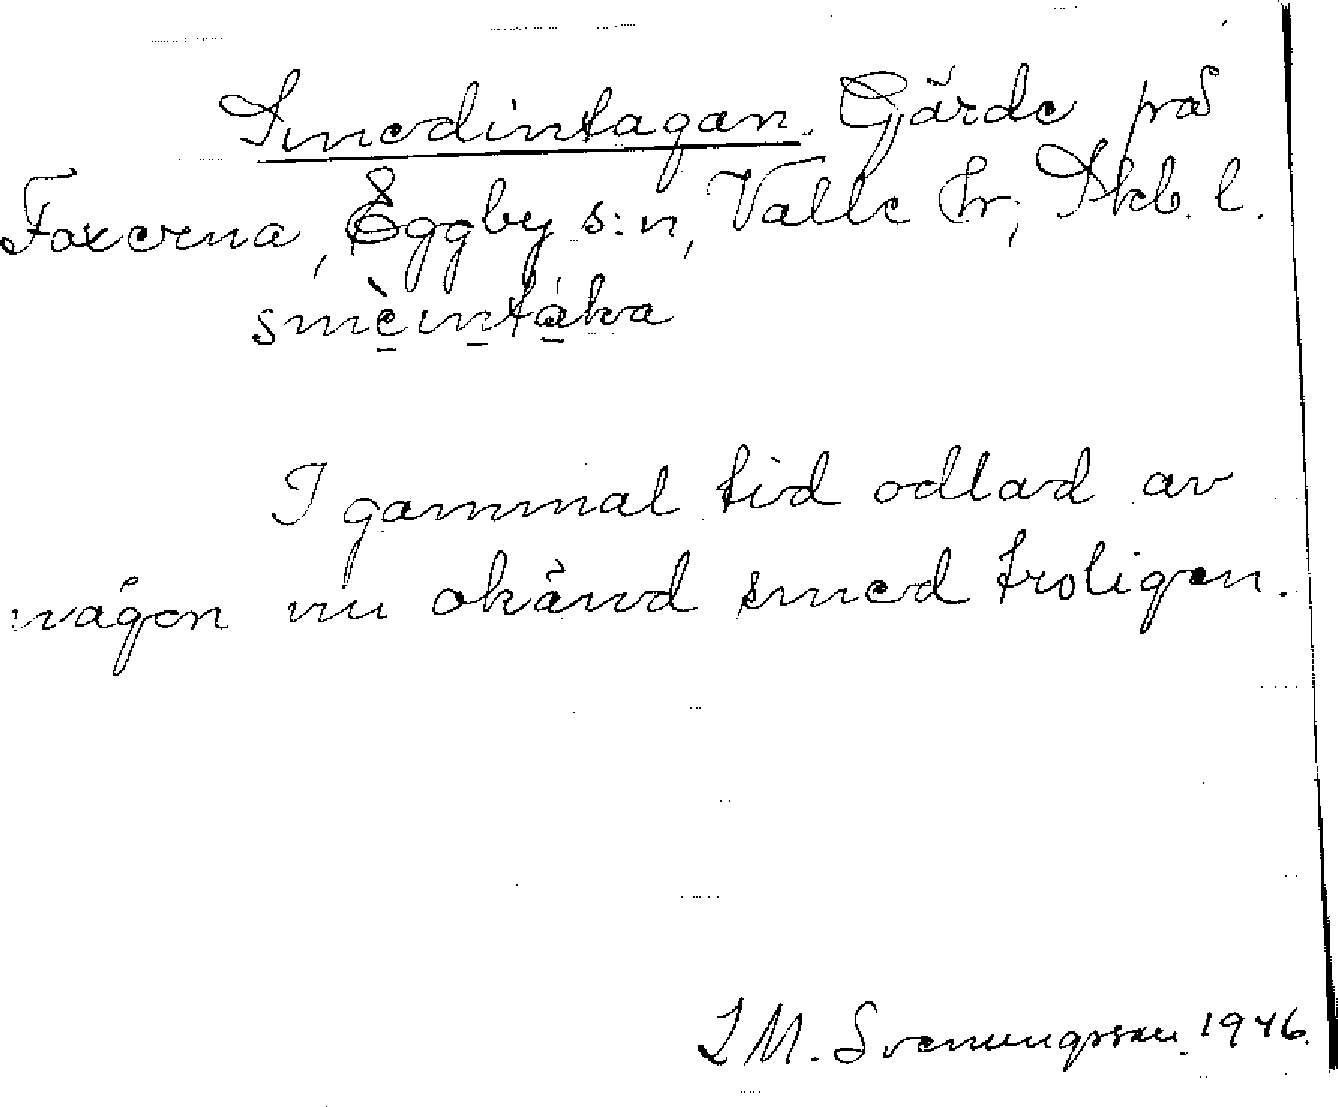 Smedintagan. Gärde på
Foxerna, Eggby s:n, Valle hr; Skb. l.
smèintáka
I gammal tid odlad av
någon nu okänd smed troligen.
I M. Svenungsson 1946.